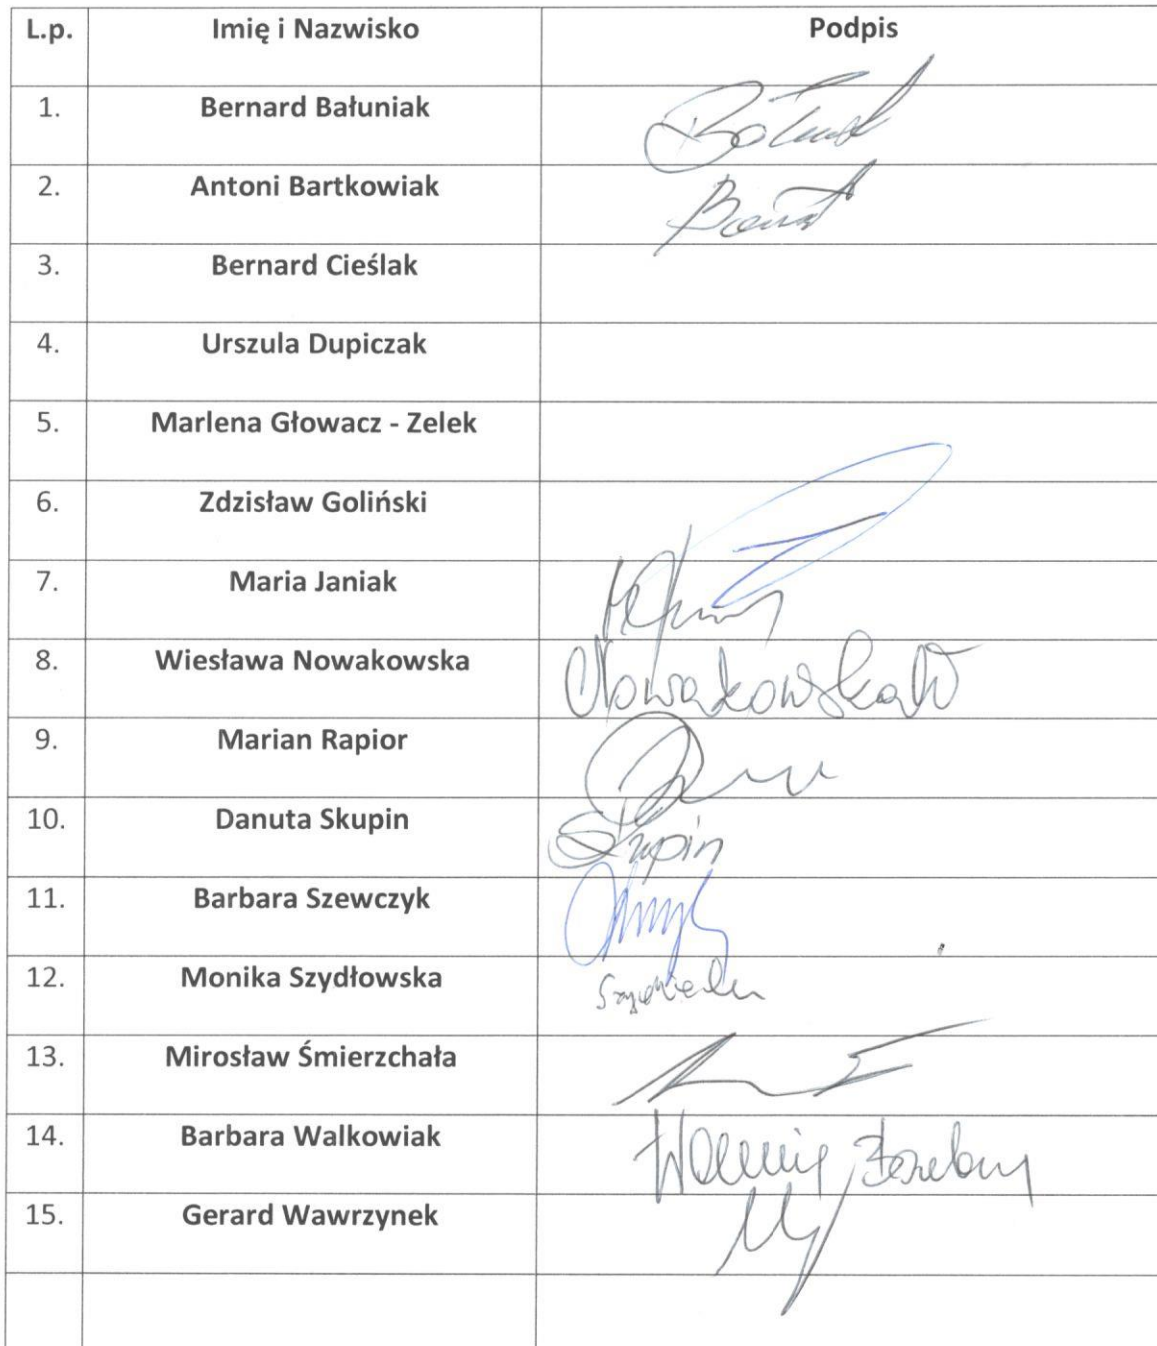 L.p. Imię i Nazwisko Podpis
1. Bernard Bałuniak
2. Antoni Bartkowiak
3. Bernard Cieślak
4. Urszula Dupiczak
5. Marlena Głowacz - Zelek
6. Zdzisław Goliński
7. Maria Janiak
8. Wiesława Nowakowska NowakowskaW
9. Marian Rapior
10. Danuta Skupin Skupin
11. Barbara Szewczyk
12. Monika Szydłowska
13. Mirosław Śmierzchała
14. Barbara Walkowiak
15. Gerard Wawrzynek